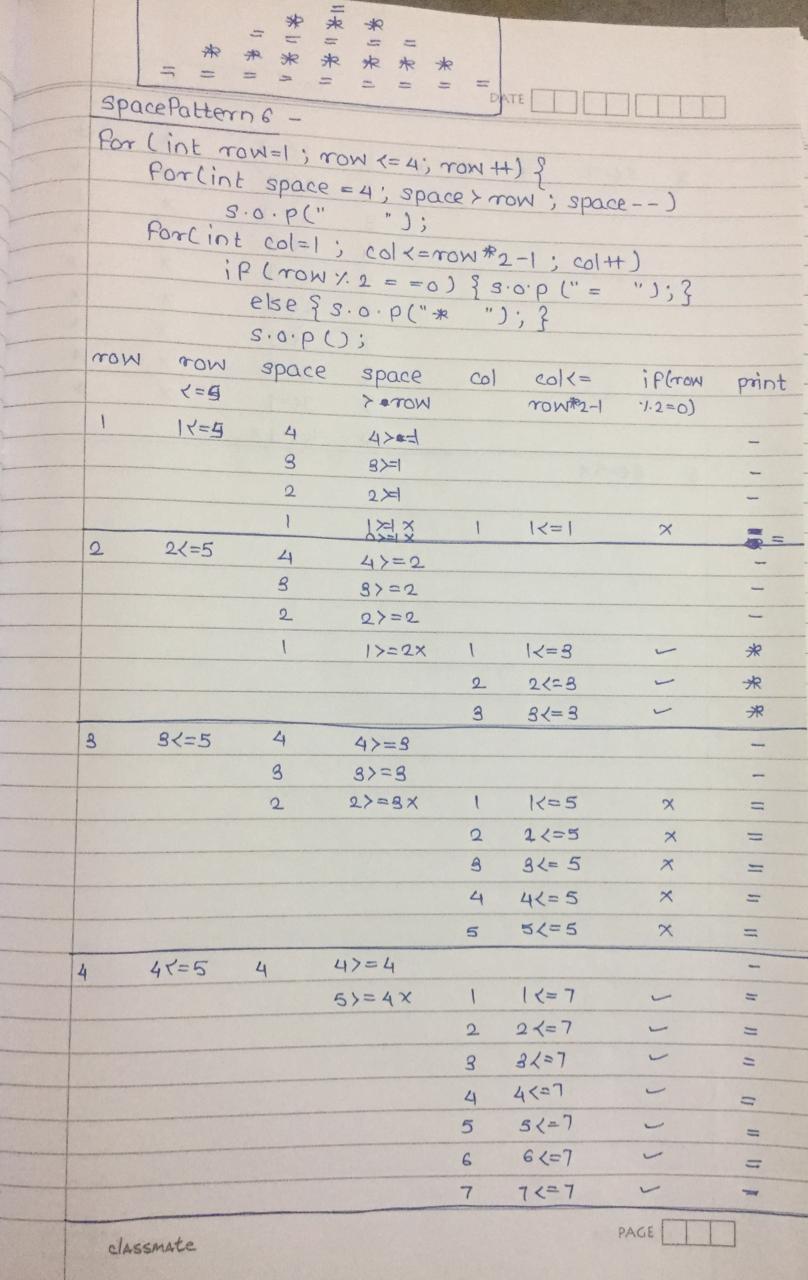 =
* * *
= = = = =
* * * * * * *
= = = = = = = = =
DATE
spacePattern 6 -
for (int row=1 ; row <=4; row ++) {
for(int space =4 ; space > row ; space--)
s.o.p(" ");
for(int col=1 ; col<=row*2-1 ; col++)
if (row % 2 = =0) { s.o.p (" = "); }
else { s.o.p(" * "); }
s.o.p();
row row space space col col<= if(row print
<=5 > row row*2-1 %2=0)
1 1<=5 4 4>=1 -
3 3>=1 -
2 2>=1 -
1 1>=1 x 1 1<=1 x =
2 2<=5 4 4>=2 -
3 3>=2 -
2 2>=2 -
1 1>=2x 1 1<=3 ✓ *
2 2<=3 ✓ *
3 3<=3 ✓ *
3 3<=5 4 4>=3 -
3 3>=3 -
2 2>=3x 1 1<=5 x =
2 2<=5 x =
3 3<=5 x =
4 4<=5 x =
5 5<=5 x =
4 4<=5 4 4>=4 -
5>=4x 1 1<=7 ✓ =
2 2<=7 ✓ =
3 3<=7 ✓ =
4 4<=7 ✓ =
5 5<=7 ✓ =
6 6<=7 ✓ =
7 7<=7 ✓ =
classmate PAGE